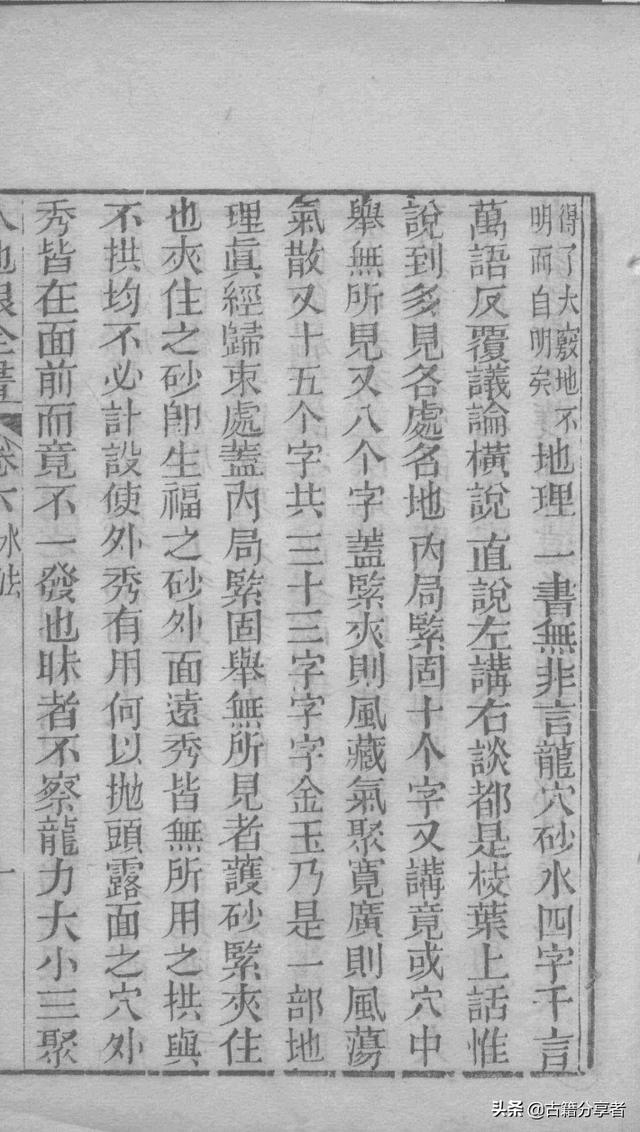 得了大竅地不
明而自明矣
地理一書無非言龍穴砂水四字千言
萬語反覆議論橫說直說左講右談都是枝葉上話惟
說到多見各處名地內局緊固十个字又講竟或穴中
舉無所見又八个字蓋緊夾則風藏氣聚寬廣則風蕩
氣散又十五个字共三十三字字字金玉乃是一部地
理眞經歸束處蓋內局緊固舉無所見者護砂緊夾住
也夾住之砂卽生福之砂外面遠秀皆無所用之拱與
不拱均不必計設使外秀有用何以拋頭露面之穴外
秀皆在面前而竟不一發也昧者不察龍力大小三聚
卷六
頭条 @古籍分享者